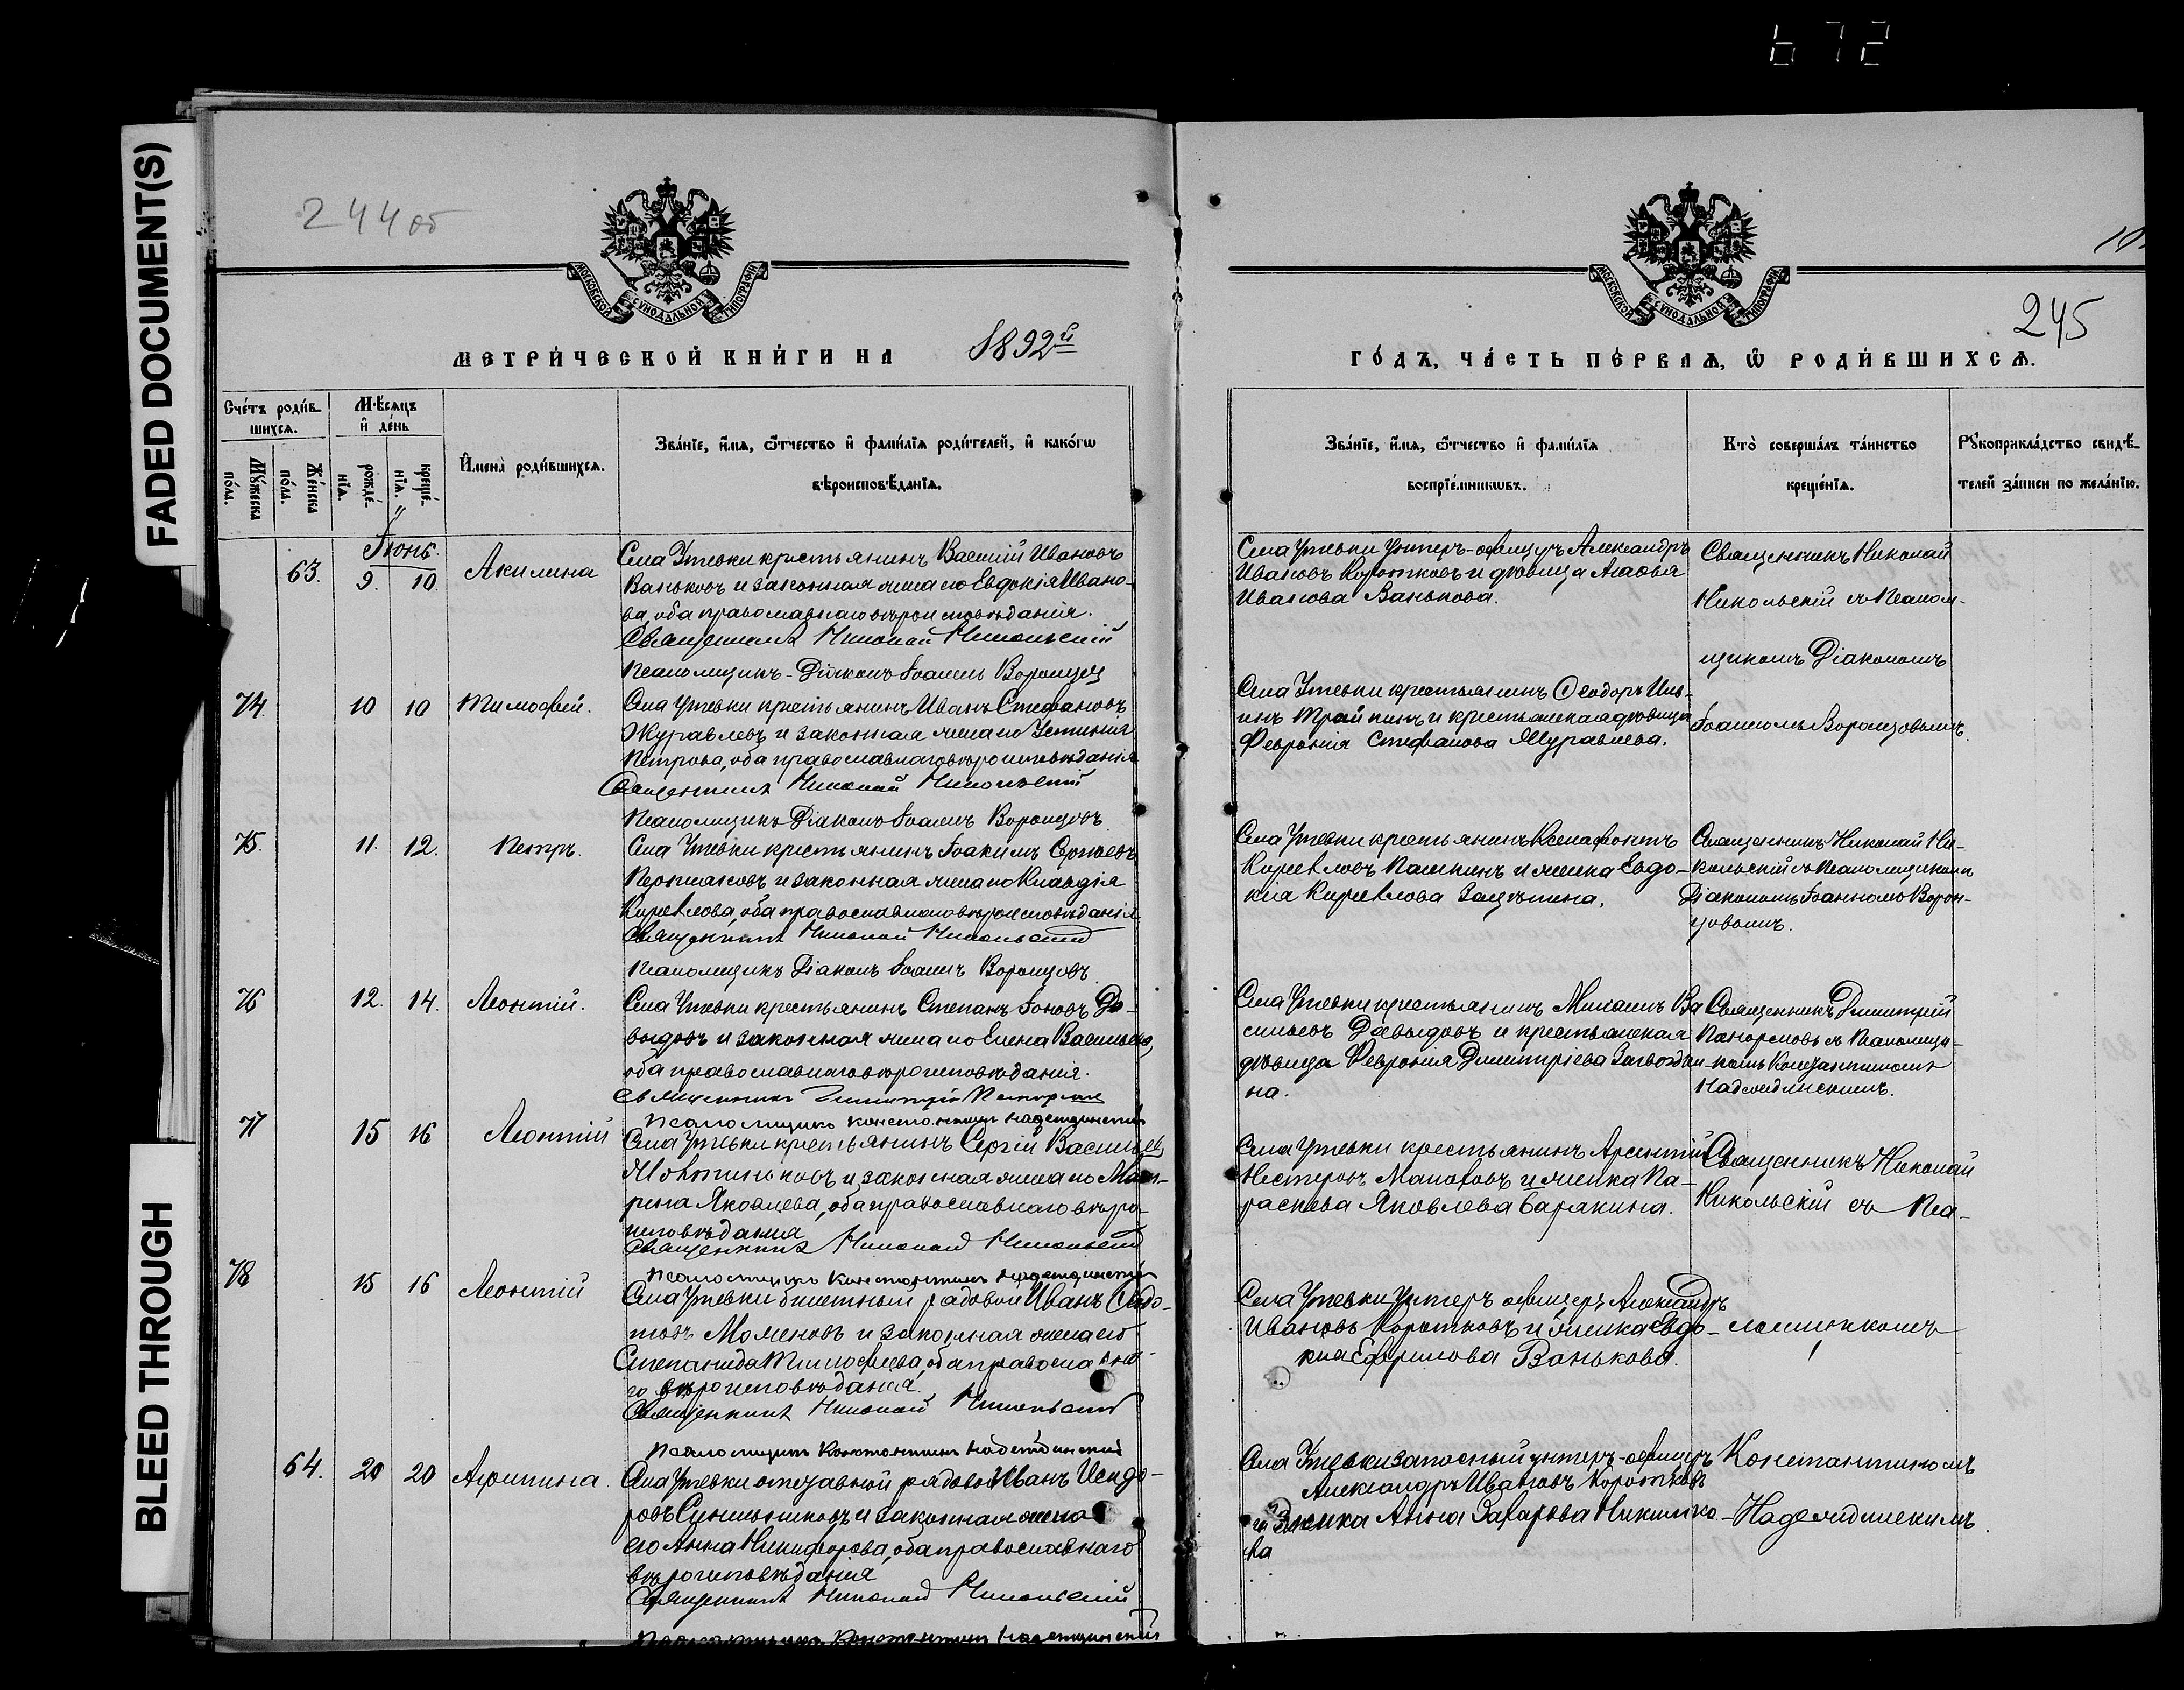 672
FADED DOCUMENT(S)
BLEED THROUGH
244 об
МОСКОВСКОЙ СѴНОДАЛЬНОЙ ТИПОГРАФІИ
МЕТРИ́ЧЕСКОЙ КНИ́ГИ НА 1892й
Сче́тъ роди́в-
шихсѧ.
Мѣ́сѧцъ
и҆ де́нь
Мꙋ́жеска
по́ла.
Же́нска
по́ла.
рожде́-
нїѧ.
креще́-
нїѧ.
И҆мена̀ роди́вшихсѧ.
Зва́нїе, и҆́мѧ, ѻ҆́тчество и҆ фами́лїѧ роди́телей, и҆ како́гѡ
вѣроисповѣ́данїѧ.
Іюнь.
63. 9. 10. Акилина
Села Утевки крестьянинъ Василій Ивановъ
Ваньковъ и законная жена его Евдокія Ивано-
ва, оба православнаго вѣроисповѣданія.
Священникъ Николай Никольскій
Псаломщикъ-Діаконъ Іоаннъ Воронцовъ
74. 10 10 Тимофей.
Села Утевки крестьянинъ Иванъ Стефановъ
Журавлевъ и законная жена его Устинія
Петрова, оба православнаго вѣроисповѣданія
Священникъ Николай Никольскій
Псаломщикъ Діаконъ Іоаннъ Воронцовъ
75. 11. 12. Петръ.
Села Утевки крестьянинъ Іоакимъ Сергѣевъ
и законная жена его Клавдія
Кириллова, оба православнаго вѣроисповѣданія
Священникъ Николай Никольскій
Псаломщикъ Діаконъ Іоаннъ Воронцовъ
76 12. 14. Леонтій.
Села Утевки крестьянинъ Степанъ Іоновъ Да-
выдовъ и законная жена его Елена Васильева,
оба православнаго вѣроисповѣданія.
Священникъ Димитрій
Псаломщикъ Константинъ Надеждинскій
77 15 16 Леонтій
Села Утевки крестьянинъ Сергій Васильевъ
и законная жена его Мат-
рена Яковлева, оба православнаго вѣро-
исповѣданія
Священникъ Николай Никольскій
Псаломщикъ Константинъ Надеждинскій
78 15 16 Леонтій
Села Утевки билетный рядовой Иванъ Ѳедо-
товъ и законная жена его
Степанида Тимофеева, оба православна-
го вѣроисповѣданія.
Священникъ Николай Никольскій
Псаломщикъ Константинъ Надеждинскій
64. 20 20 Агрипина.
Села Утевки отставной рядовой Иванъ Исидо-
ровъ Синельниковъ и законная жена
его Анна Никифорова, оба православнаго
вѣроисповѣданія
Священникъ Николай Никольскій
Псаломщикъ Константинъ Надеждинскій
МОСКОВСКОЙ СѴНОДАЛЬНОЙ ТИПОГРАФІИ
245
ГО́ДЪ, ЧА́СТЬ ПЕ́РВАѦ, Ѡ҆ РОДИ́ВШИХСѦ.
Зва́нїе, и҆́мѧ, ѻ҆́тчество и҆ фами́лїѧ
воспрїе́мникѡвъ.
Кто̀ соверша́лъ та́инство
креще́нїѧ.
Рꙋкоприкла́дство свидѣ́-
телей за́писи по жела́нїю.
Села Утевки Унтеръ-офицеръ Александръ
Ивановъ Коротковъ и дѣвица Агаѳья
Иванова Ванькова.
Священникъ Николай
Никольскій съ Псалом-
щикомъ Діакономъ
Іоанномъ Воронцовымъ.
Села Утевки крестьянинъ Ѳеодоръ Иль-
инъ Трайкинъ и крестьянская дѣвица
Феврония Стефанова Журавлева.
Села Утевки крестьянинъ Ксенафонтъ
Кирилловъ Пашкинъ и женка Евдо-
кія Кириллова Зацепина.
Священникъ Николай Ни-
кольскій съ Псаломщикомъ
Діакономъ Іоанномъ Ворон-
цовымъ.
Села Утевки крестьянинъ Михаилъ Ва
сильевъ Давыдовъ и крестьянская
дѣвица Февронія Димитріева Загвозди
на.
Священникъ Димитрій
съ Псаломщи-
комъ Константиномъ
Надеждинскимъ.
Села Утевки крестьянинъ Арсентій
Нестеровъ и женка Па-
раскева Яковлева Баракина.
Священникъ Николай
Никольскій съ Пса-
Села Утевки Унтеръ офицеръ Александръ
Ивановъ Коротковъ и женка Евдо-
кія Ефримова Ванькова.
ломщикомъ
Села Утевки запасный унтеръ-офицеръ
Александръ Ивановъ Коротковъ
и женка Анна Захарова
ва
Константиномъ
Надеждинскимъ.